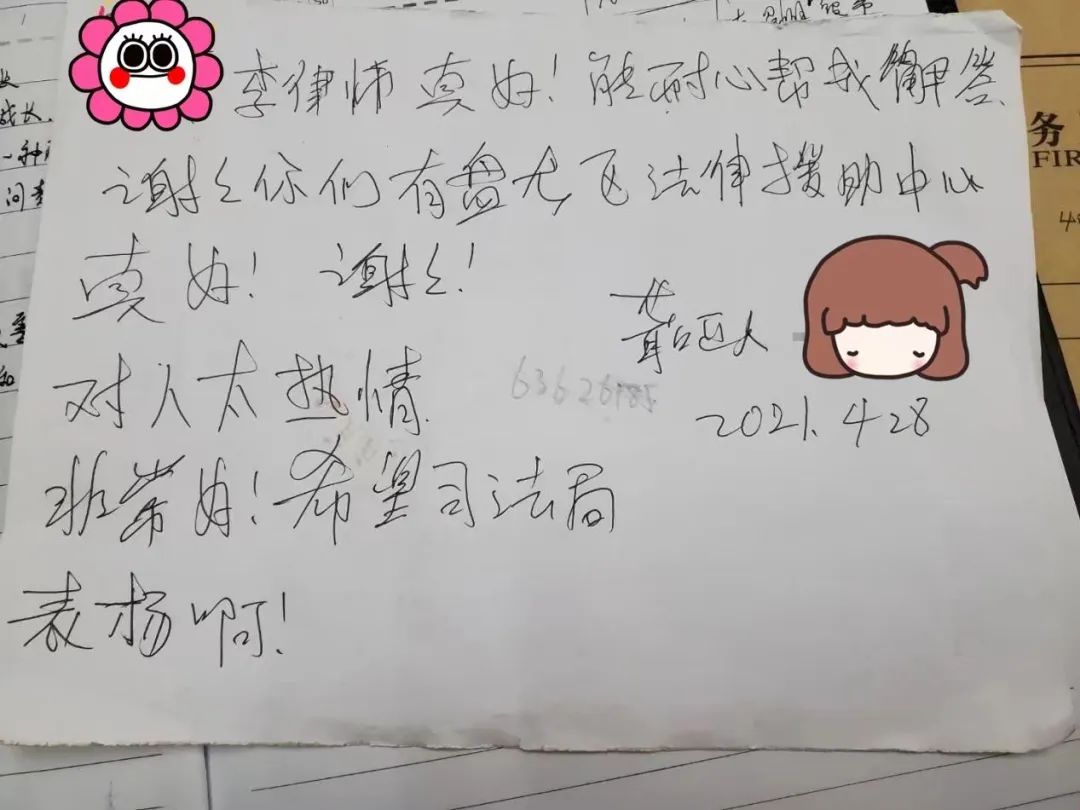 李律师真好！能耐心帮我解答
谢谢你们有盘龙区法律援助中心
真好！谢谢！
对人太热情
非常好！希望司法局
表扬啊！
2021.4.28
务
FIR
成长.
一种
问